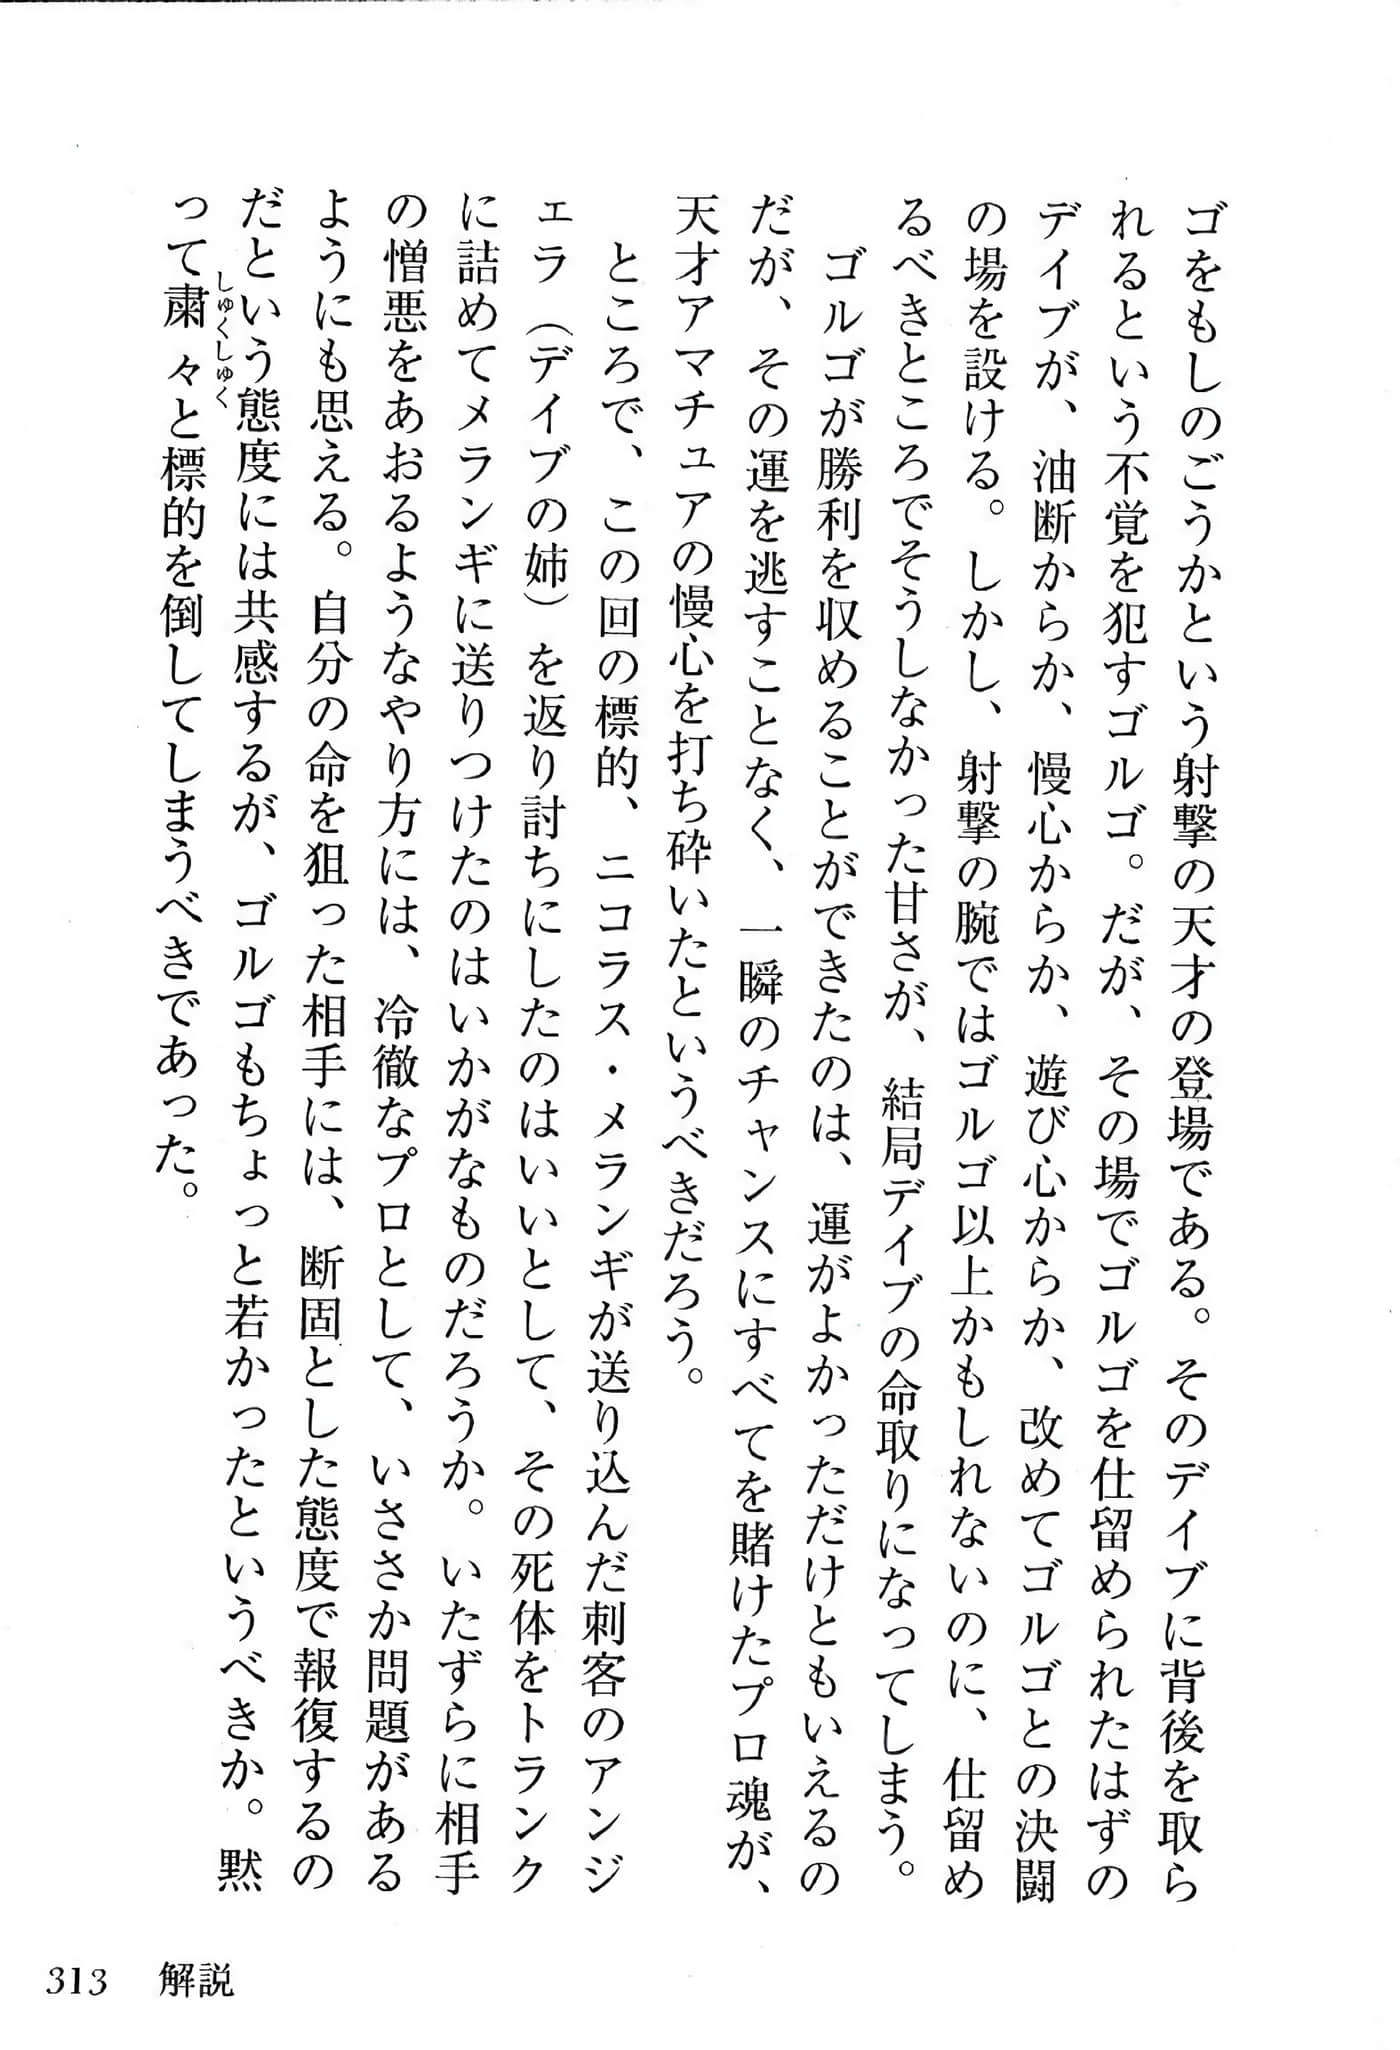 ゴをもしのごうかという射撃の天才の登場である。そのデイブに背後を取ら
れるという不覚を犯すゴルゴ。だが、その場でゴルゴを仕留められたはずの
デイブが、油断からか、慢心からか、遊び心からか、改めてゴルゴとの決闘
の場を設ける。しかし、射撃の腕ではゴルゴ以上かもしれないのに、仕留め
るべきところでそうしなかった甘さが、結局デイブの命取りになってしまう。
　ゴルゴが勝利を収めることができたのは、運がよかっただけともいえるの
だが、その運を逃すことなく、一瞬のチャンスにすべてを賭けたプロ魂が、
天才アマチュアの慢心を打ち砕いたというべきだろう。
　ところで、この回の標的、ニコラス・メランギが送り込んだ刺客のアンジ
ェラ（デイブの姉）を返り討ちにしたのはいいとして、その死体をトランク
に詰めてメランギに送りつけたのはいかがなものだろうか。いたずらに相手
の憎悪をあおるようなやり方には、冷徹なプロとして、いささか問題がある
ようにも思える。自分の命を狙った相手には、断固とした態度で報復するの
だという態度には共感するが、ゴルゴもちょっと若かったというべきか。黙
しゅくしゅく
って粛々と標的を倒してしまうべきであった。
313　解説